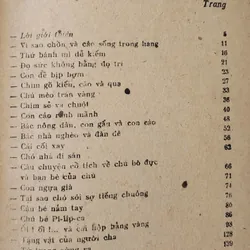 Trang
— Lời giới thiệu 5
— Vì sao chồn và các sống trong hang 11
— Thứ bánh mì dễ kiếm 16
— Đọ sức không bằng đọ trí 21
— Con dê bịp bợm 23
— Chim gõ kiến, cáo và quạ 27
— Chú mèo trán vàng 31
— Chim sẻ và chuột
— Con cáo ranh mãnh
— Bác nông dân, con gấu và con cáo
— Bác nhà nghèo và đàn dê
— Cái cối xay 63
— Chú nhà đi săn
— Câu chuyện cổ tích về chú bò đực 66
và bạn bè của chú 71
— Con ngựa giả 74
— Tại sao chó sói sợ tiếng chuông
— Cậu bé nắm tay
— Chú bé Pi-líp-ca 86
và cái hộp bằng vàng 98
— Tặng vật của người cha 128
139